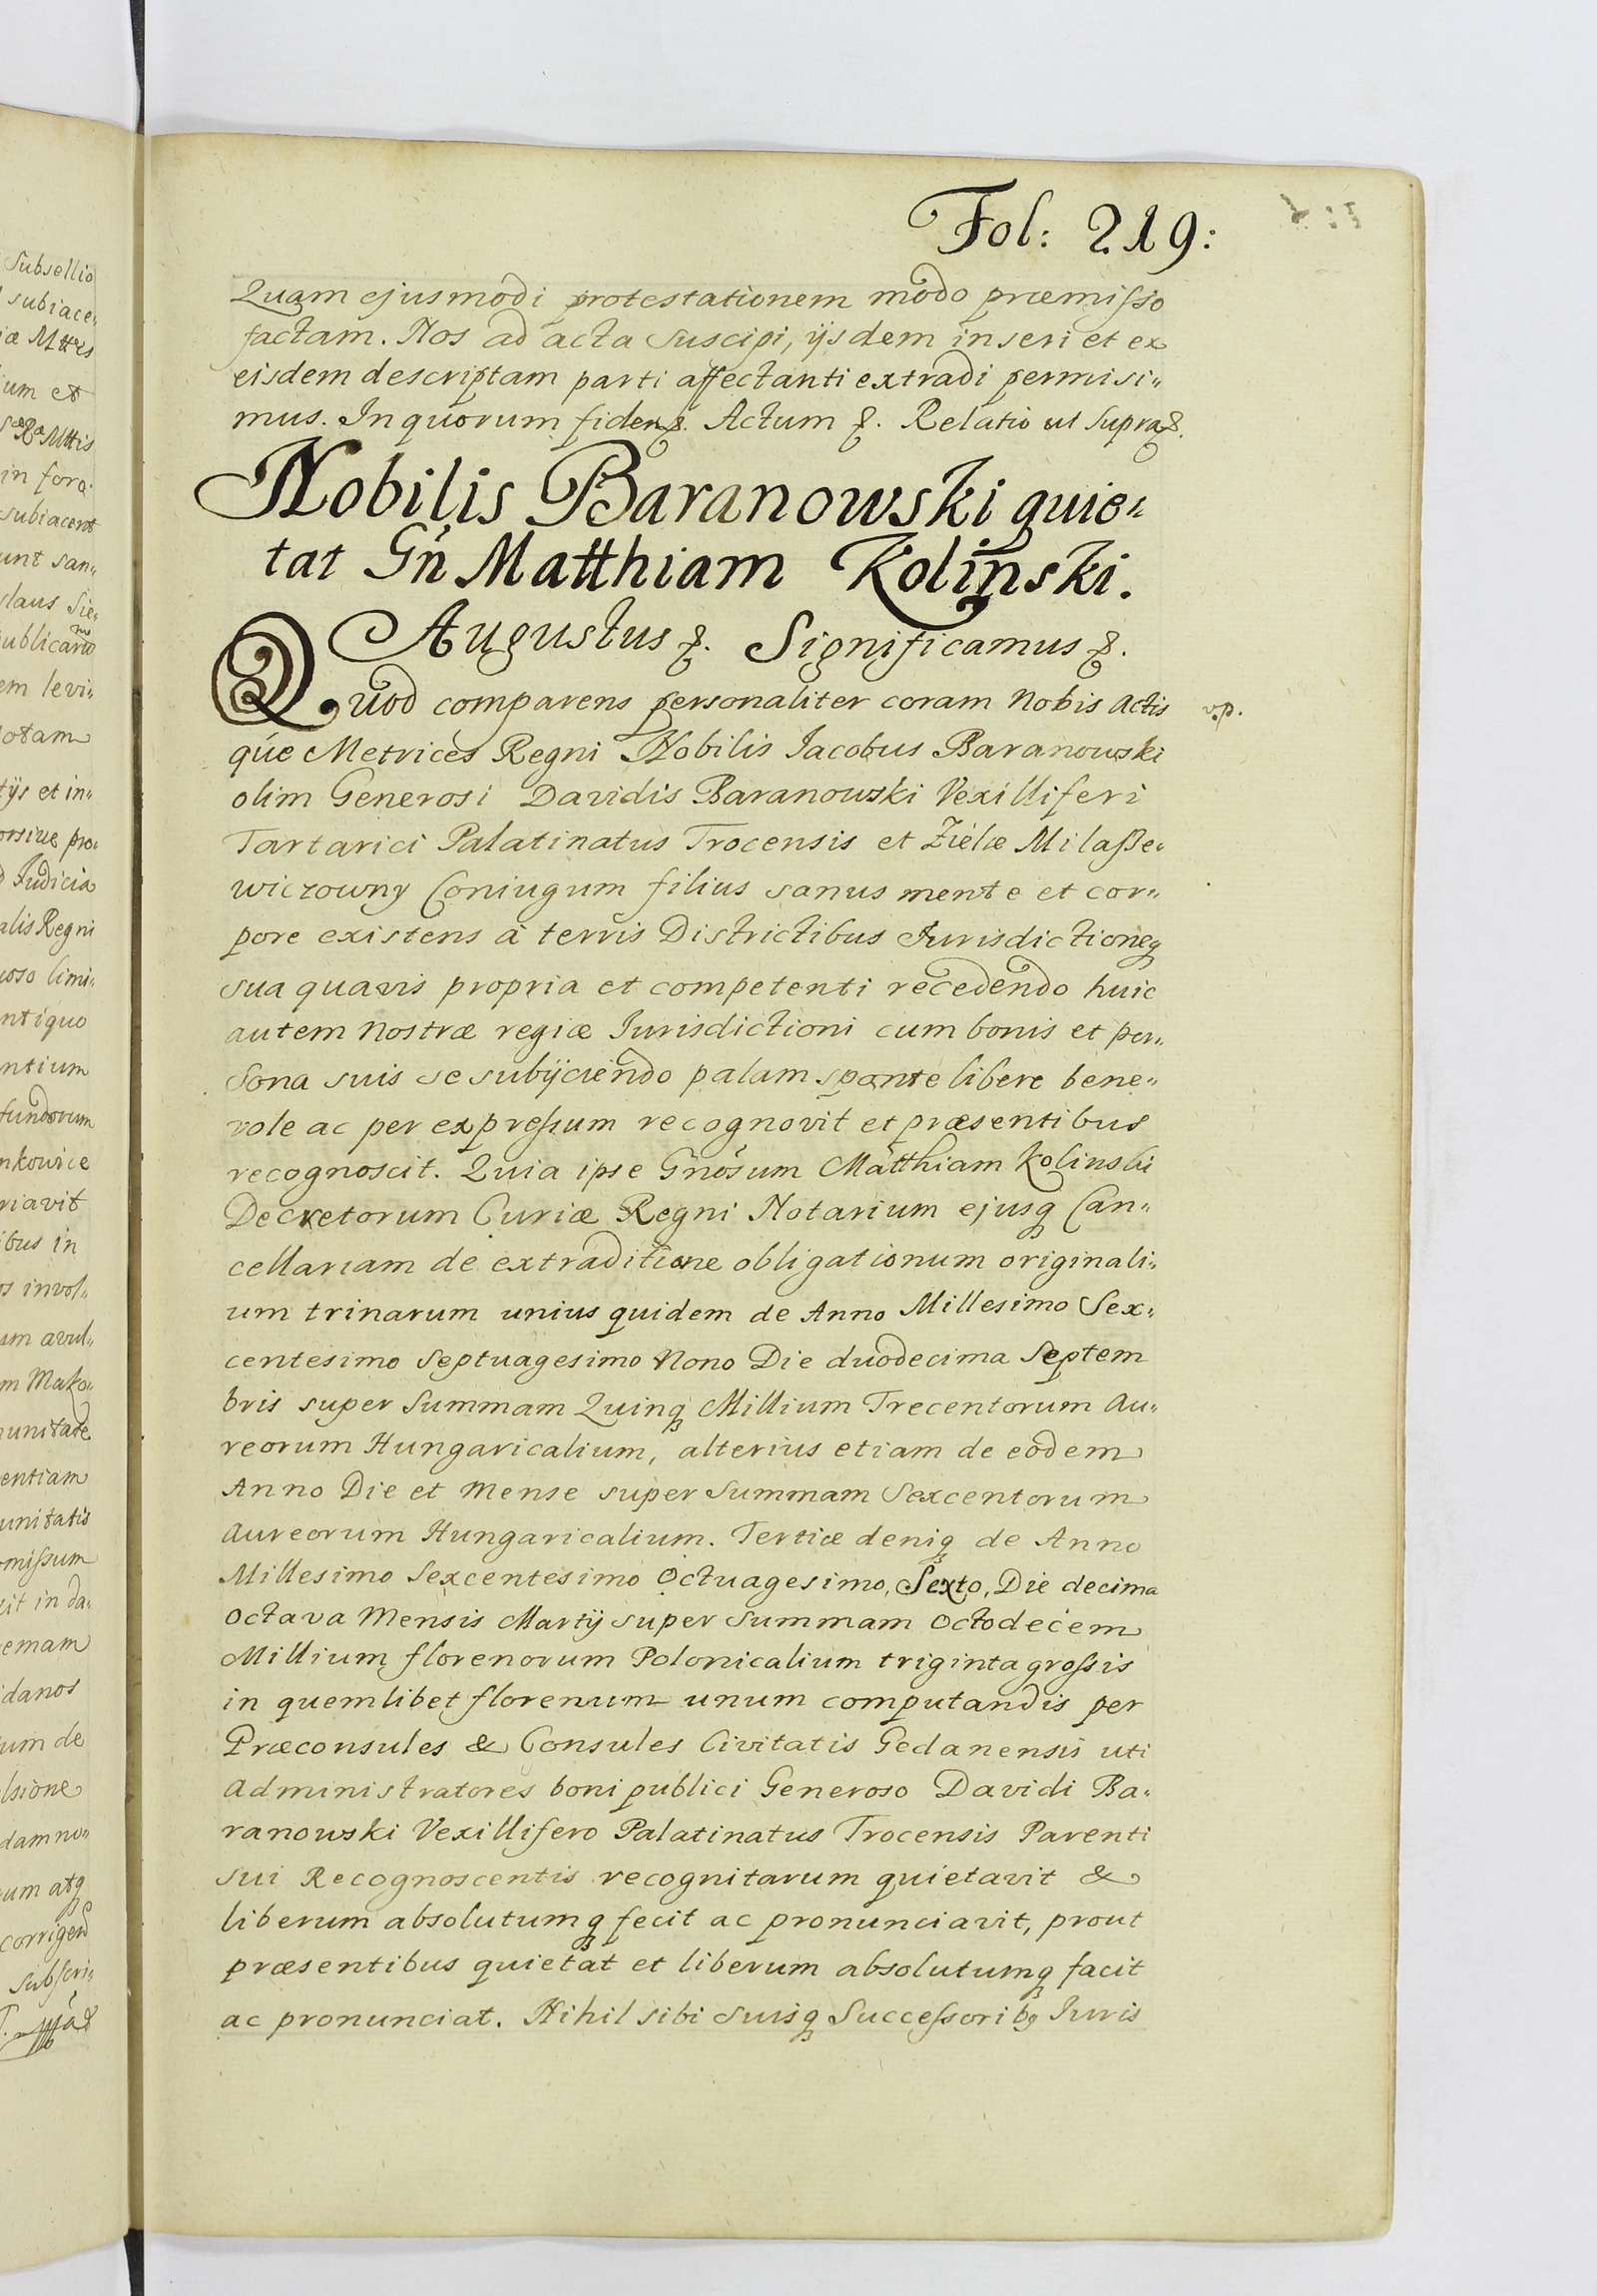 Subsellio
subiace„
iæ Mttis
ium et
Sæ Ræ Mttis
in foro.
subiacent
unt san„
slaus Sie„
ublicamo
em levi„
otam
tys et in„
orsiue pro„
Judicia
alis Regni
uoso limi„
ntiquo
ntium
fundorum
nkowice
riavit
ibus in
os invol„
um avul„
m Mako„
unitate
entiam
unitatis
omissum
cit in da„
emam
danos
um de
lsione
damno„
um atq
corrigend
subscri„
Fol: 219:
Quam ejusmodi protestationem modo præmisso
factam. Nos ad acta suscipi, ijsdem inseri et ex
eisdem descriptam parti affectanti extradi permisi„
mus. In quorum fidem &. Actum &. Relatio ut supra &.
Nobilis Baranowski quie„
tat Gn̄ Matthiam Kolinski.
Augustus &. Significamus &.
Quod comparens personaliter coram Nobis actis
v.p.
que Metrices Regni Nobilis Jacobus Baranowski
olim Generosi Davidis Baranowski Vexilliferi
Tartarici Palatinatus Trocensis et Zielæ Milassze„
wiczowny Coniugum filius sanus mente et cor„
pore existens à terris Districtibus Jurisdictioneq
sua quavis propria et competenti recedendo huic
autem nostræ regiæ Jurisdictioni cum bonis et per„
sona suis se subijciendo palam sponte libere bene„
vole ac per expressum recognovit et præsentibus
recognoscit. Quia ipse Gnosum Matthiam Kolinski
Decretorum Curiæ Regni Notarium ejusq Can„
cellariam de extraditione obligationum originali„
um trinarum unius quidem de Anno Millesimo Sex„
centesimo Septuagesimo Nono Die duodecima Septem
bris super Summam Quinq Millium Trecentorum Au„
reorum Hungaricalium, alterius etiam de eodem
Anno Die et Mense super Summam Sexcentorum
Aureorum Hungaricalium. Tertiæ deniq de Anno
Millesimo Sexcentesimo Octuagesimo, Sexto, Die decima
octava Mensis Martij super Summam Octodecem
Millium florenorum Polonicalium triginta grossis
in quemlibet florenum unum computandis per
Præconsules & Consules Civitatis Gedanensis uti
Administratores boni publici Generoso Davidi Ba„
ranowski Vexillifero Palatinatus Trocensis Parenti
sui Recognoscentis recognitarum quietavit &
liberum absolutumq fecit ac pronunciavit, prout
præsentibus quietat et liberum absolutumq facit
ac pronunciat. Nihil sibi suisq Successoribg Juris